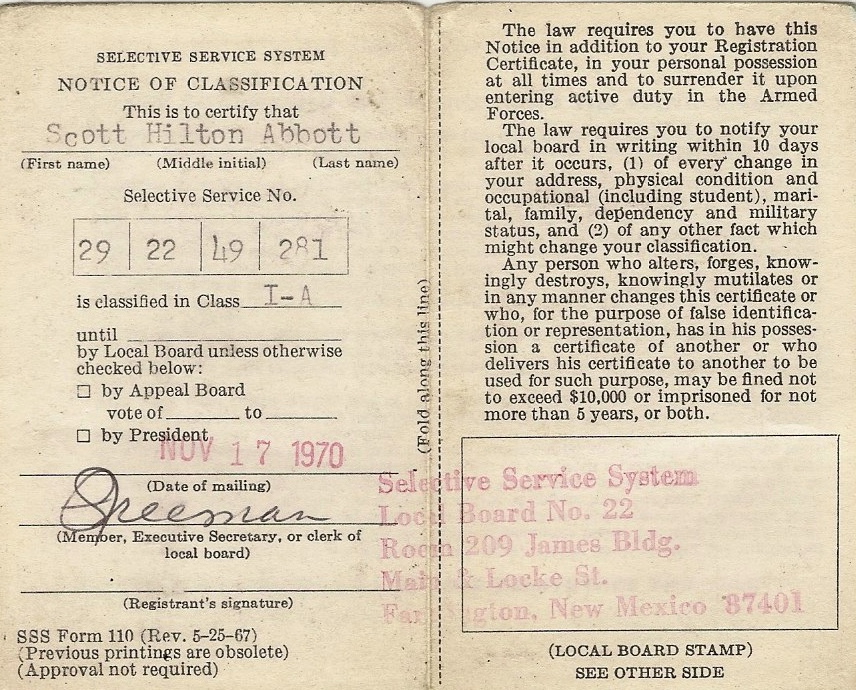 SELECTIVE SERVICE SYSTEM
NOTICE OF CLASSIFICATION
This is to certify that
Scott Hilton Abbott
(First name) (Middle initial) (Last name)
Selective Service No.
29 22 49 281
is classified in Class I-A
until
by Local Board unless otherwise
checked below:
☐ by Appeal Board
vote of to
☐ by President
NOV 17 1970
(Date of mailing)
(Member, Executive Secretary, or clerk of
local board)
(Registrant's signature)
SSS Form 110 (Rev. 5-25-67)
(Previous printings are obsolete)
(Approval not required)
(Fold along this line)
The law requires you to have this
Notice in addition to your Registration
Certificate, in your personal possession
at all times and to surrender it upon
entering active duty in the Armed
Forces.
The law requires you to notify your
local board in writing within 10 days
after it occurs, (1) of every change in
your address, physical condition and
occupational (including student), mari-
tal, family, dependency and military
status, and (2) of any other fact which
might change your classification.
Any person who alters, forges, know-
ingly destroys, knowingly mutilates or
in any manner changes this certificate or
who, for the purpose of false identifica-
tion or representation, has in his posses-
sion a certificate of another or who
delivers his certificate to another to be
used for such purpose, may be fined not
to exceed $10,000 or imprisoned for not
more than 5 years, or both.
Selective Service System
Local Board No. 22
Room 209 James Bldg.
Main & Locke St.
Farmington, New Mexico 87401
(LOCAL BOARD STAMP)
SEE OTHER SIDE